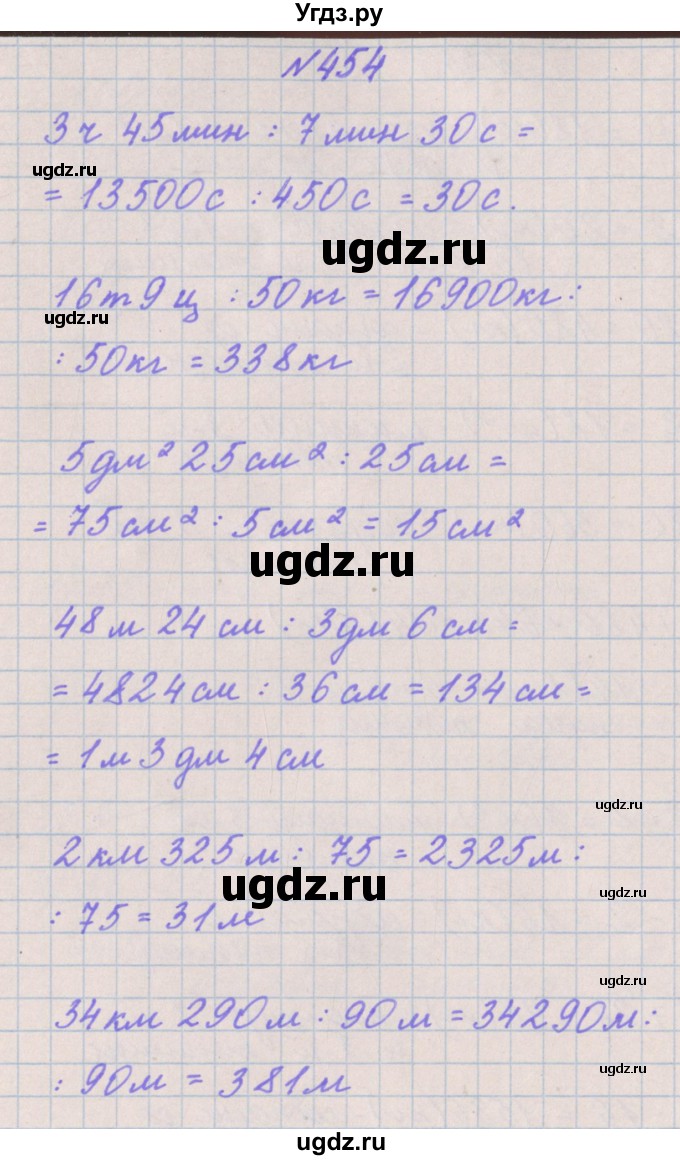 Угдз.ру
№454
3 ч 45 мин : 7 мин 30 с =
ugdz.ru
= 13500 с : 450 с = 30 с.
ugdz.ru
16 т 9 ц : 50 кг = 16900 кг :
ugdz.ru
: 50 кг = 338 кг
5 дм² 25 см² : 25 см =
= 75 см² : 5 см² = 15 см²
ugdz.ru
48 м 24 см : 3 дм 6 см =
= 4824 см : 36 см = 134 см =
= 1 м 3 дм 4 см
ugdz.ru
2 км 325 м : 75 = 2325 м :
ugdz.ru
ugdz.ru
: 75 = 31 м
ugdz.ru
34 км 290 м : 90 м = 34290 м :
ugdz.ru
: 90 м = 381 м
ugdz.ru